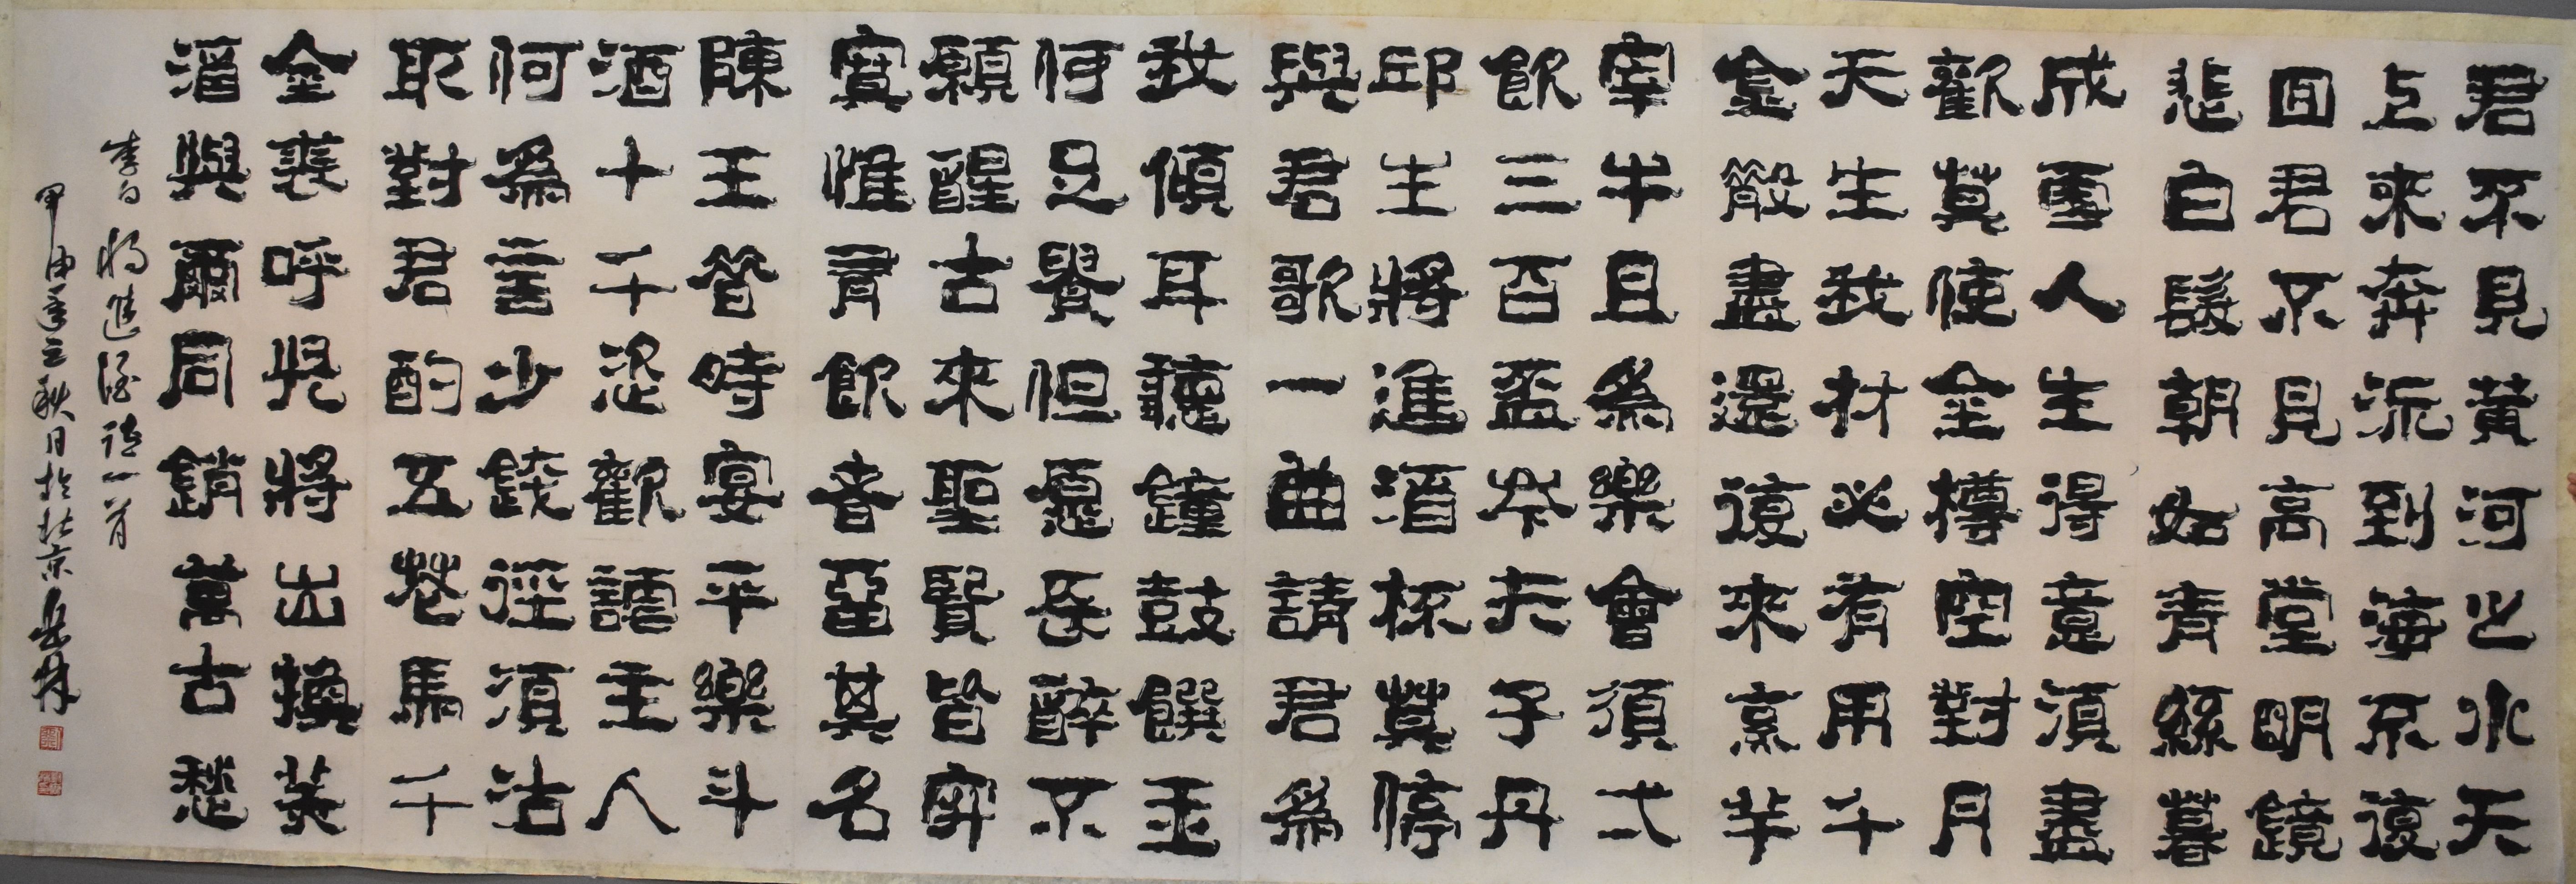 君不見黃河之水天
上來奔流到海不復
回君不見高堂明鏡
悲白髮朝如青絲暮
成雪人生得意須盡
歡莫使金樽空對月
天生我材必有用千
金散盡還復來烹羊
宰牛且為樂會須弌
飲三百盃岑夫子丹
邱生將進酒杯莫停
與君歌一曲請君為
我傾耳聽鐘鼓饌玉
何足貴但愿長醉不
願醒古來聖賢皆寂
寞惟有飲者留其名
陳王昔時宴平樂斗
酒十千恣歡謔主人
何為言少錢徑須沽
取對君酌五花馬千
金裘呼兒將出換美
酒與爾同銷萬古愁
李白將進酒詩一首
甲申逢立秋日於北京